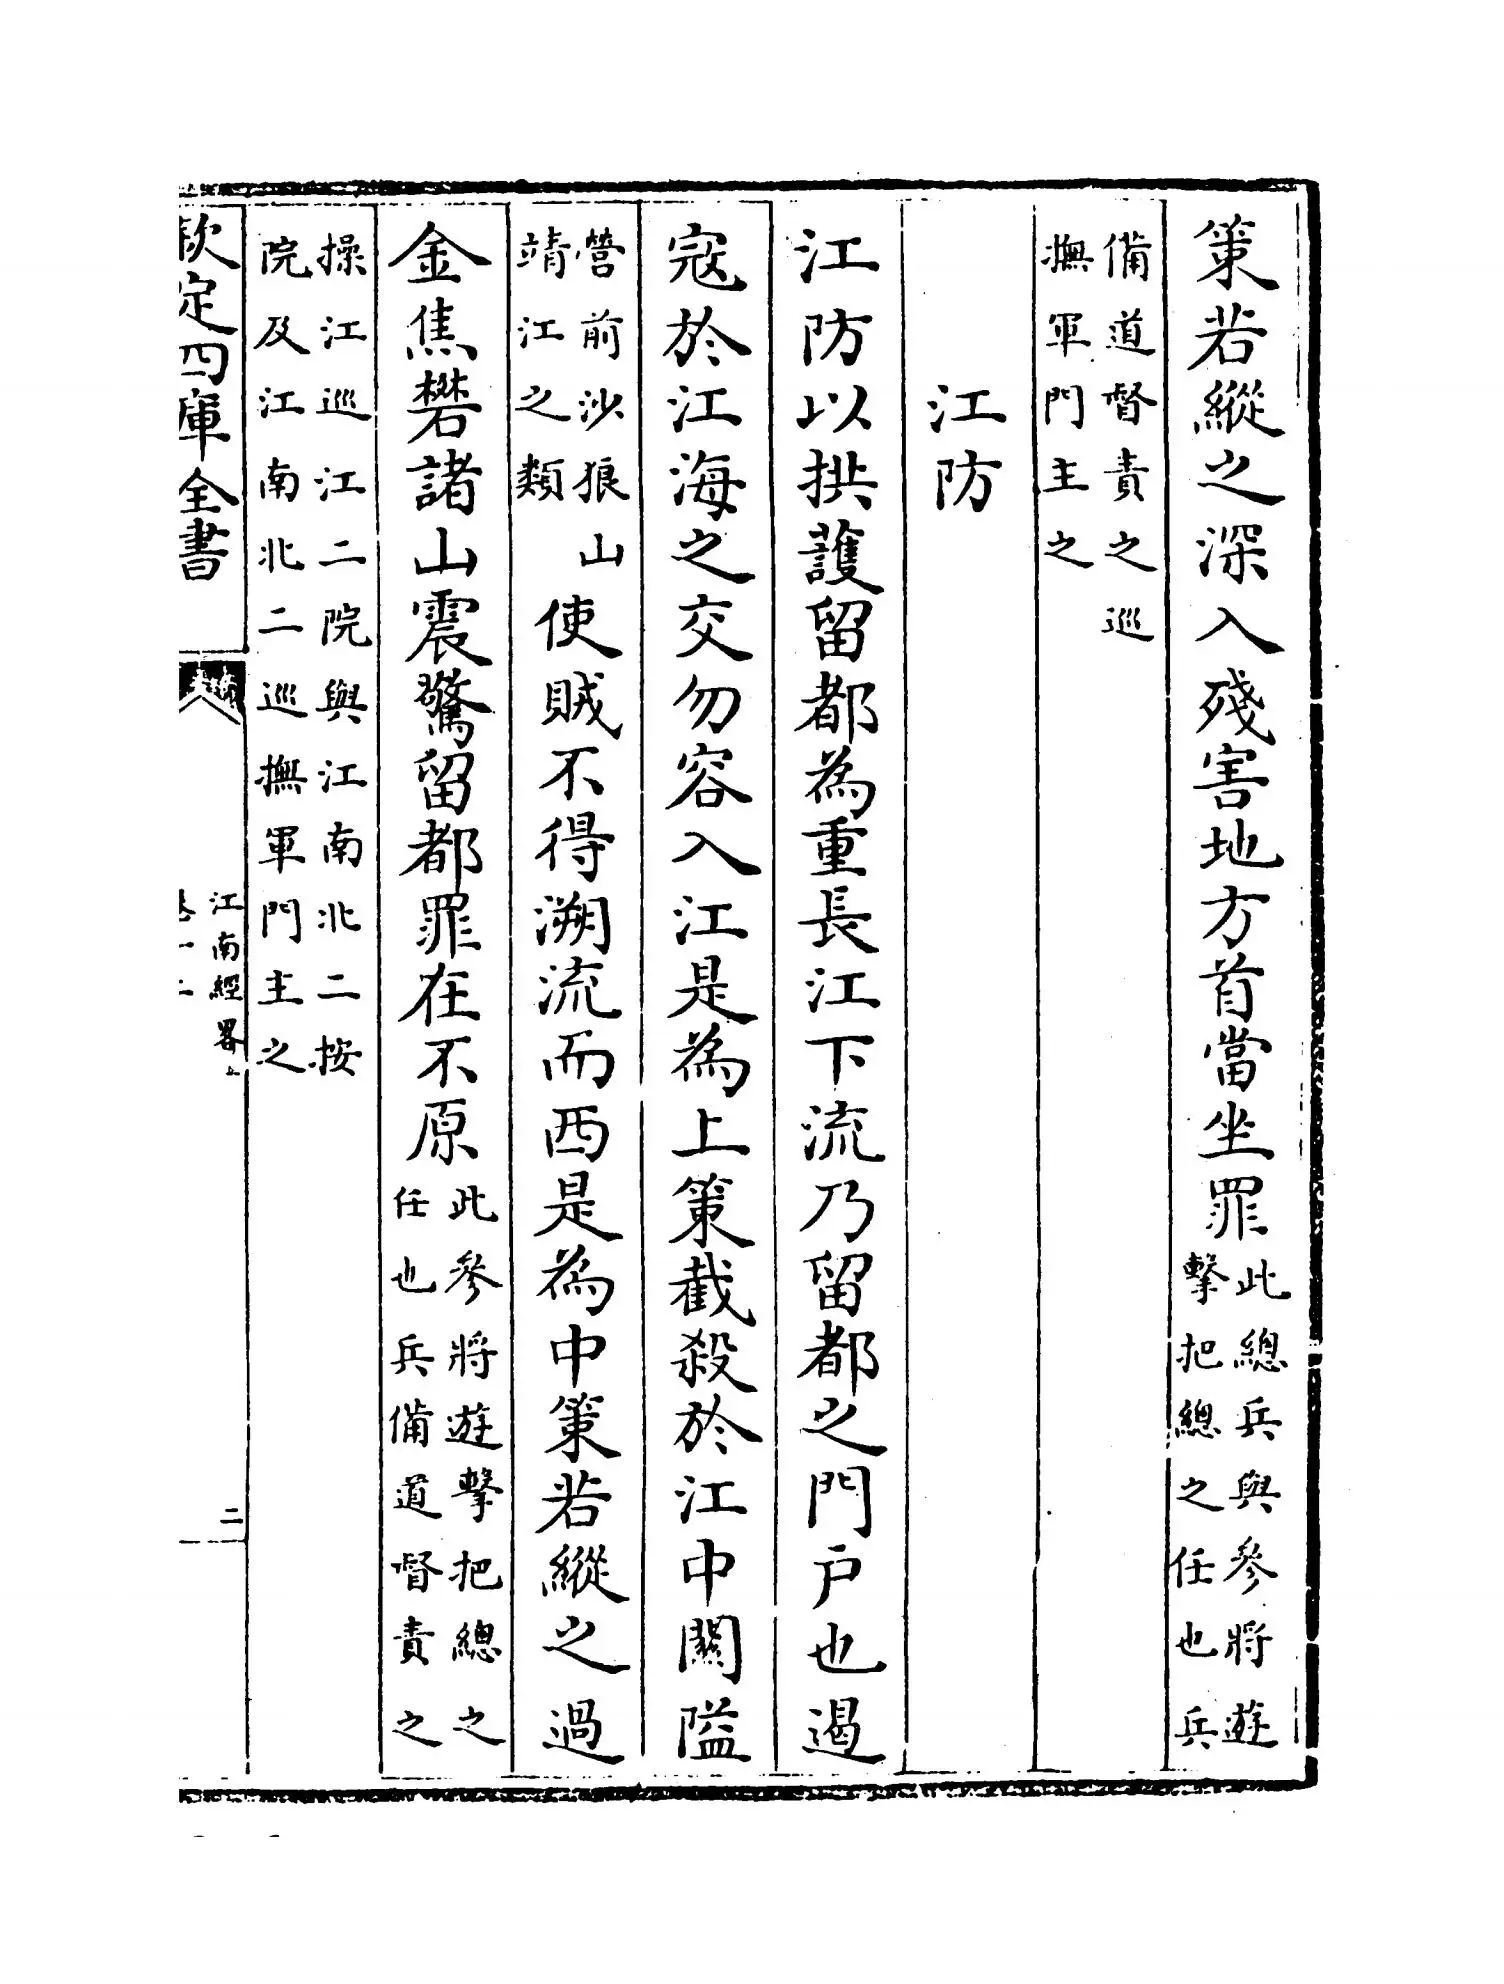 策若縱之深入殘害地方首當坐罪此總兵與參將遊
擊把總之任也兵
備道督責之巡
撫軍門主之
江防
江防以拱護留都為重長江下流乃留都之門户也遏
寇於江海之交勿容入江是為上策截殺於江中關隘
營前沙狼山
靖江之類
使賊不得溯流而西是為中策若縱之過
金焦礬諸山震驚留都罪在不原此參將遊擊把總之
任也兵備道督責之
操江巡江二院與江南北二按
院及江南北二巡撫軍門主之
欽定四庫全書
江南經畧上
卷一上
二